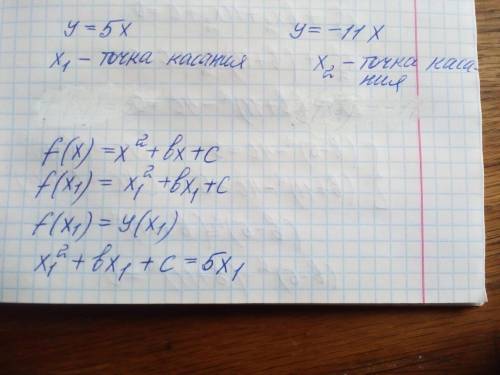 y = 5x
y = -11x
x₁ - точка касания
x₂ - точка каса-
ния
f(x) = x² + bx + c
f(x₁) = x₁² + bx₁ + c
f(x₁) = y(x₁)
x₁² + bx₁ + c = 5x₁